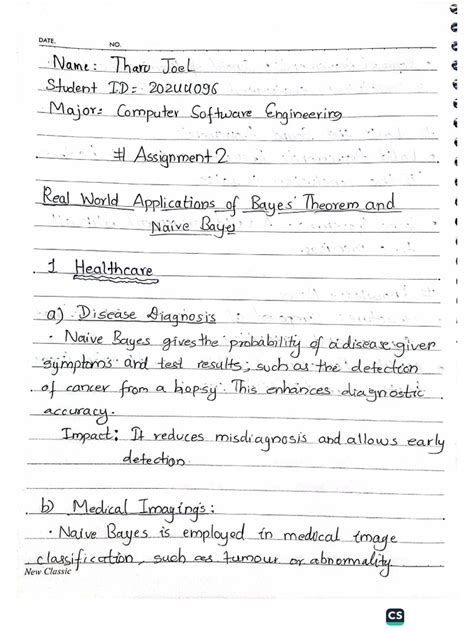 DATE.
NO.
Name: Tharo Joel
Student ID:
Major: Computer Software Engineering
# Assignment 2
Real World Applications of Bayes' Theorem and
Naive Bayes
1 Healthcare
a) Disease Diagnosis :
· Naive Bayes gives the probability of a disease given
symptoms and test results, such as the detection
of cancer from a biopsy. This enhances diagnostic
accuracy.
Impact: It reduces misdiagnosis and allows early
detection.
b) Medical Imagings:
· Naive Bayes is employed in medical image
classification, such as tumour or abnormality
New Classic
CS